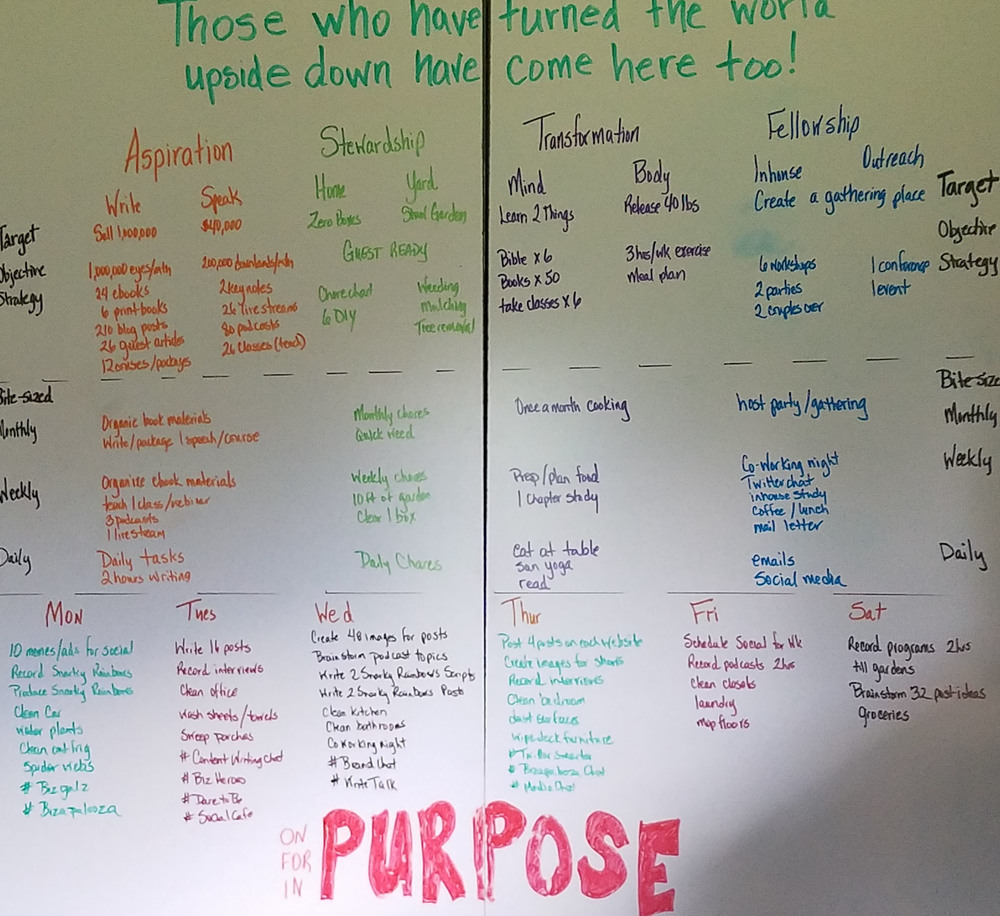 Those who have turned the world
upside down have come here too!
Aspiration
Write
Sell 1,000,000
Speak
$40,000
Stewardship
Home
Zero Boxes
Yard
GUEST READY
Transformation
Mind
Learn 2 Things
Body
Release 40 lbs
Fellowship
Inhouse
Outreach
Create a gathering place
Target
Objective
Strategy
Target
Objective
Strategy
1,000,000 eyes/mth
24 ebooks
6 print books
210 blog posts
26 guest articles
200,000
2 keynotes
26 livestreams
80 podcasts
26 Classes (teach)
Chore chart
6 DIY
Weeding
mulching
Tree removal
Bible x 6
Books x 50
take classes x 6
3 hrs/wk exercise
Meal plan
6 workshops
2 parties
2 couples over
1 conference
1 event
Bite-sized
Monthly
Organic book materials
Write/package 1 speech/course
Monthly chores
Quick weed
Once a month cooking
host party/gathering
Bite size
Monthly
Weekly
Organize ebook materials
teach 1 class/webinar
3 podcasts
1 livestream
Weekly chores
10 ft of garden
Clear 1 box
Prep/plan food
1 Chapter study
Co-working night
Twitter chat
inhouse study
coffee/lunch
mail letter
Weekly
Daily
Daily tasks
2 hours writing
Daily Chores
eat at table
yoga
read
emails
Social media
Daily
Mon
10 memes/ads for social
Record Snarky Rainbows
Produce Snarky Rainbows
Clean Car
water plants
Clean out frig
Spider webs
# Bizgalz
# Bizapalooza
Tues
Write 16 posts
Record interviews
Clean office
wash sheets/towels
Sweep porches
# Content Writing Chat
# Biz Heroes
# Dare to Be
# Social Cafe
Wed
Create 48 images for posts
Brainstorm podcast topics
Write 2 Snarky Rainbows Scripts
Write 2 Snarky Rainbows Posts
Clean kitchen
Clean bathrooms
Coworking night
# Brand Chat
# Write Talk
Thur
Post 4 posts on each website
Create images for
Record interviews
Clean bedroom
dust surfaces
wipe deck furniture
# Bizapalooza Chat
# Media Chat
Fri
Schedule Social for Wk
Record podcasts 2hrs
Clean closets
laundry
mop floors
Sat
Record programs 2hrs
till gardens
Brainstorm 32 post ideas
groceries
ON
FOR
IN
PURPOSE